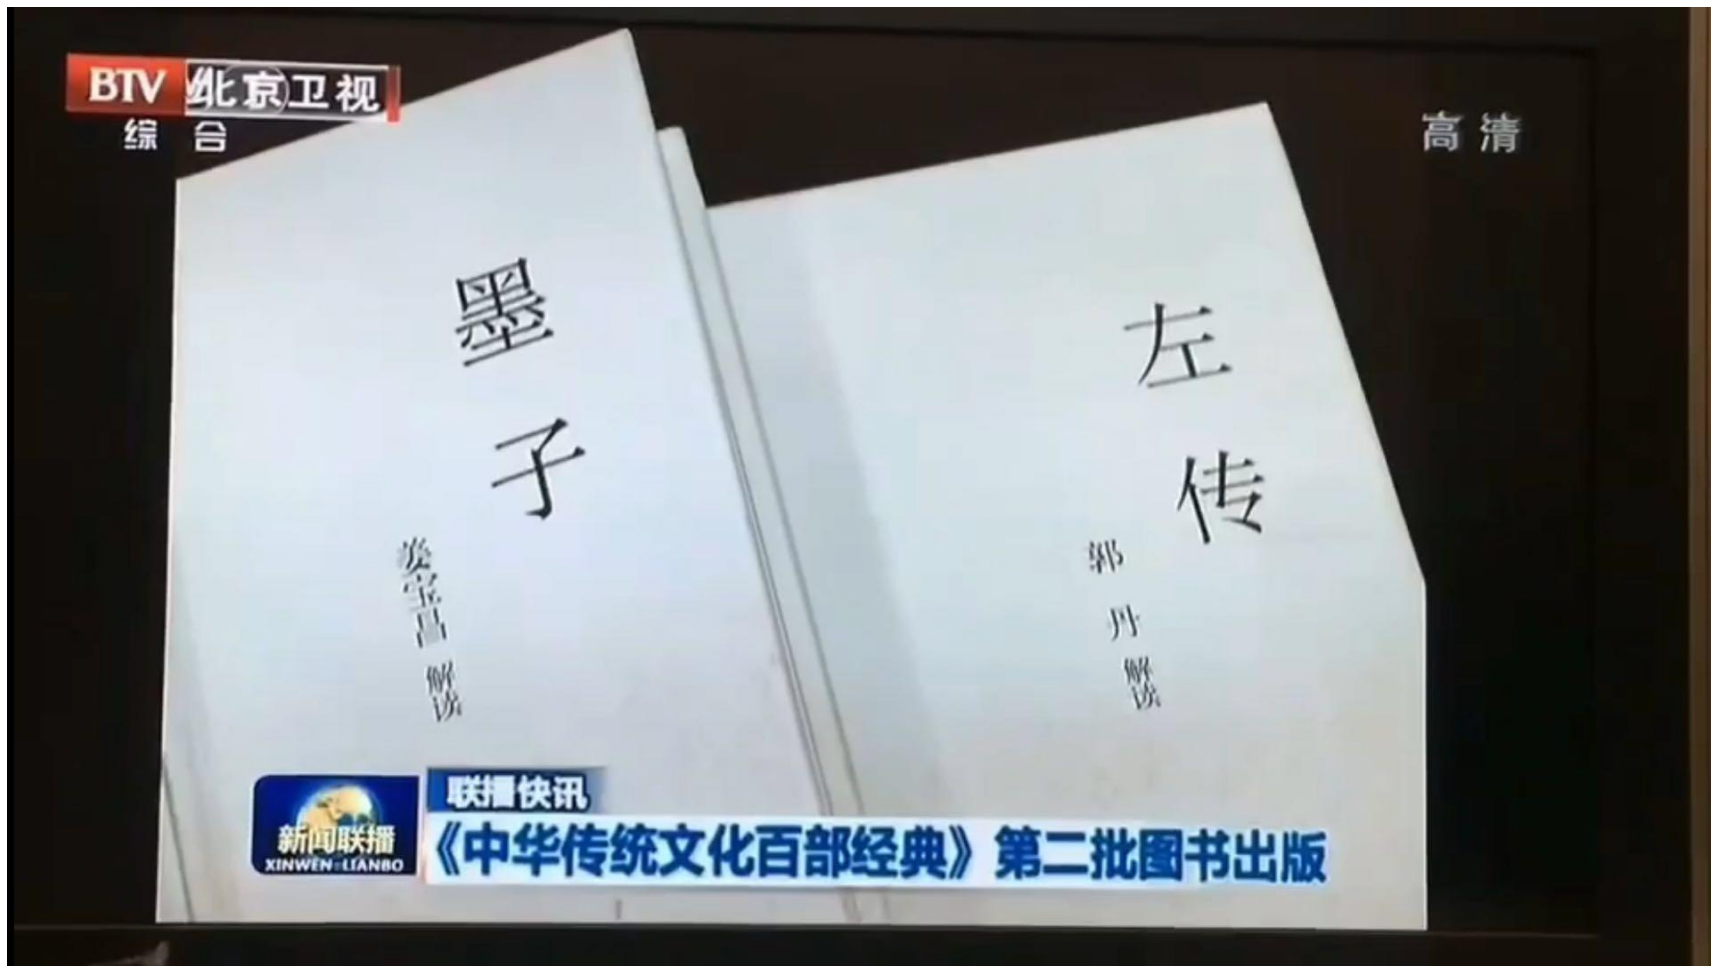 BTV 北京卫视
综合
高清
墨子
姜宝昌 解读
左传
郭丹 解读
联播快讯
新闻联播
XINWEN LIANBO
《中华传统文化百部经典》第二批图书出版